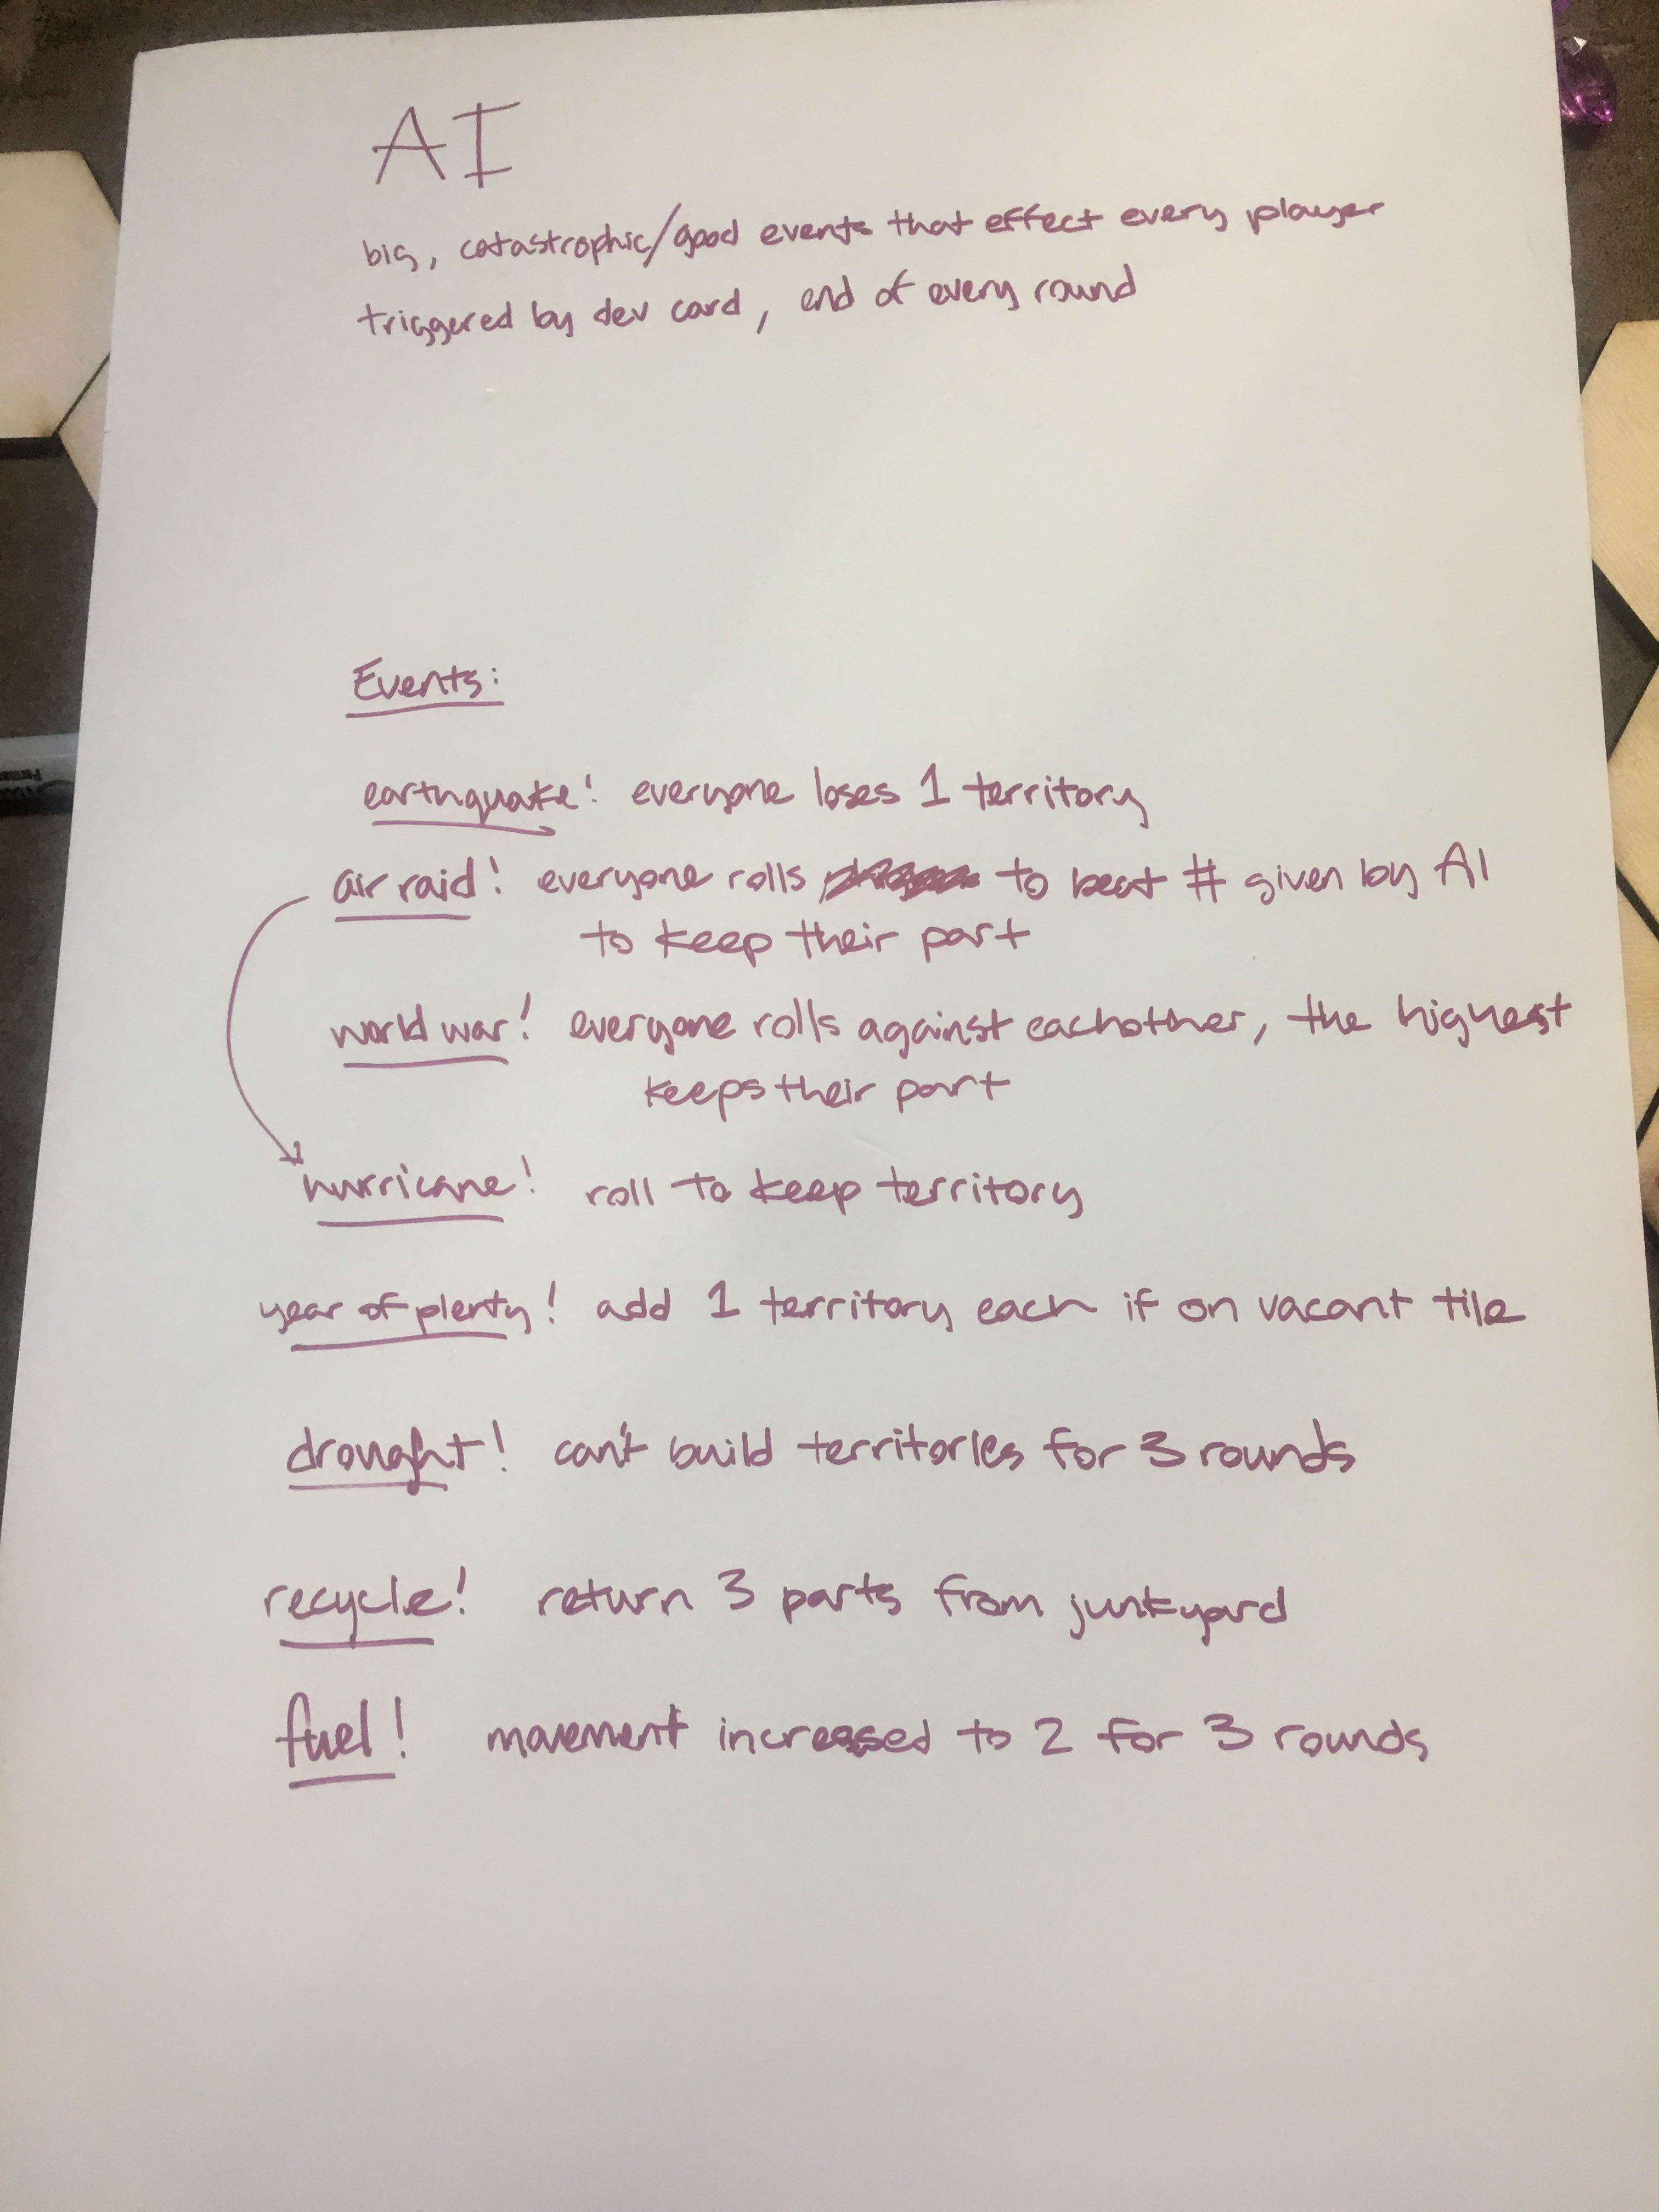 AI
big, catastrophic/good events that effect every player
triggered by dev card, end of every round
Events:
earthquake! everyone loses 1 territory
air raid! everyone rolls to beat # given by AI
to keep their part
world war! everyone rolls against eachother, the highest
keeps their part
hurricane! roll to keep territory
year of plenty! add 1 territory each if on vacant tile
drought! can't build territories for 3 rounds
recycle! return 3 parts from junkyard
fuel! movement increased to 2 for 3 rounds